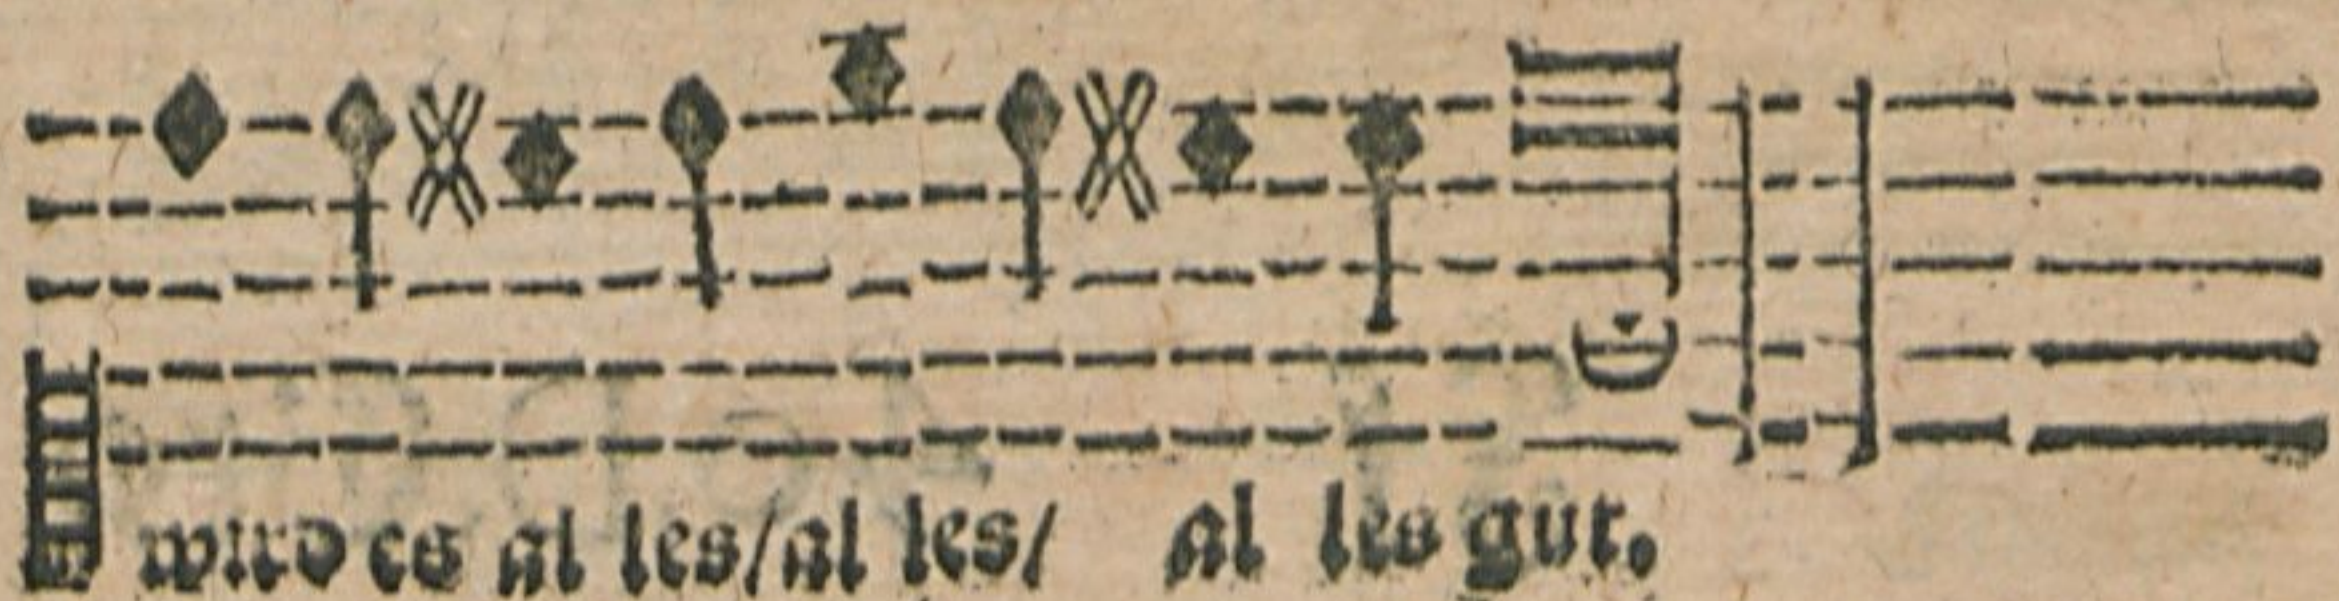 wird es al les/al les/ al les gut.